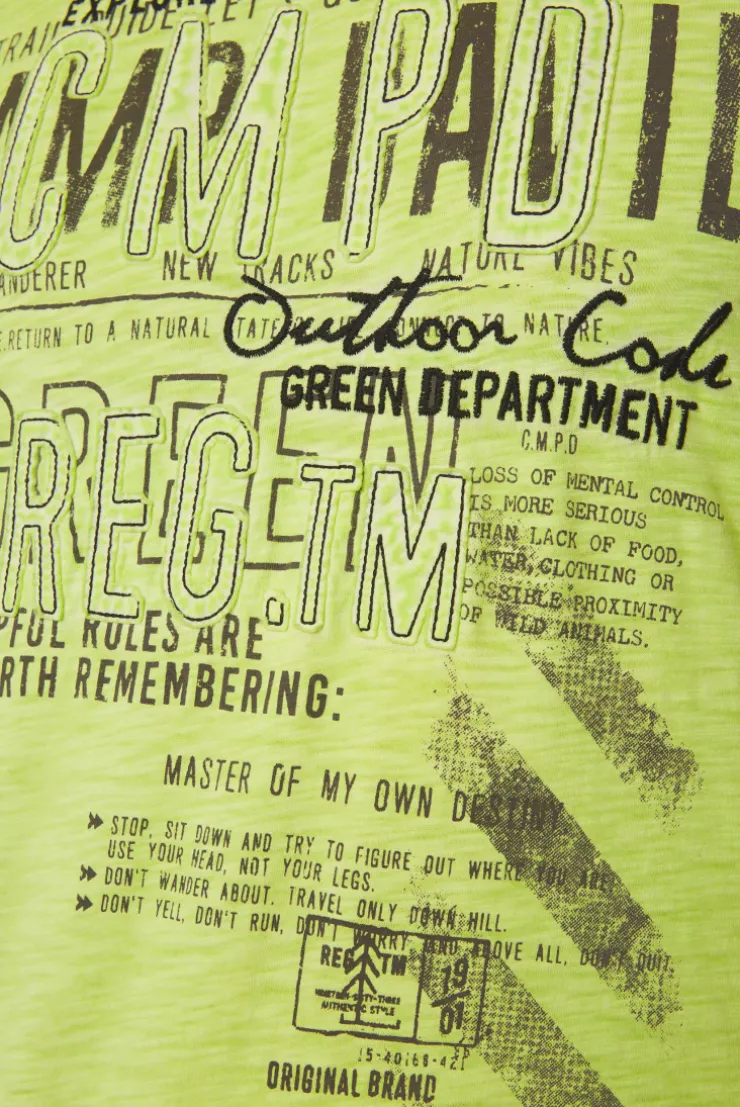 CMPD
NEW TRACKS
NATURE VIBES
RETURN TO A NATURAL STATE
TO NATURE.
Outdoor Code
GREEN DEPARTMENT
C.M.P.D
GREEN
REG.TM
LOSS OF MENTAL CONTROL
IS MORE SERIOUS
THAN LACK OF FOOD,
WATER, CLOTHING OR
POSSIBLE PROXIMITY
OF WILD ANIMALS.
RULES ARE
REMEMBERING:
MASTER OF MY OWN DESTINY
STOP, SIT DOWN AND TRY TO FIGURE OUT WHERE YOU ARE!
USE YOUR HEAD, NOT YOUR LEGS.
DON'T WANDER ABOUT. TRAVEL ONLY DOWN HILL.
DON'T YELL, DON'T RUN, DON'T WORRY AND ABOVE ALL, DON'T QUIT.
REG TM
19
01
NINETEEN SIXTY-THREE
AUTHENTIC STYLE
ORIGINAL BRAND